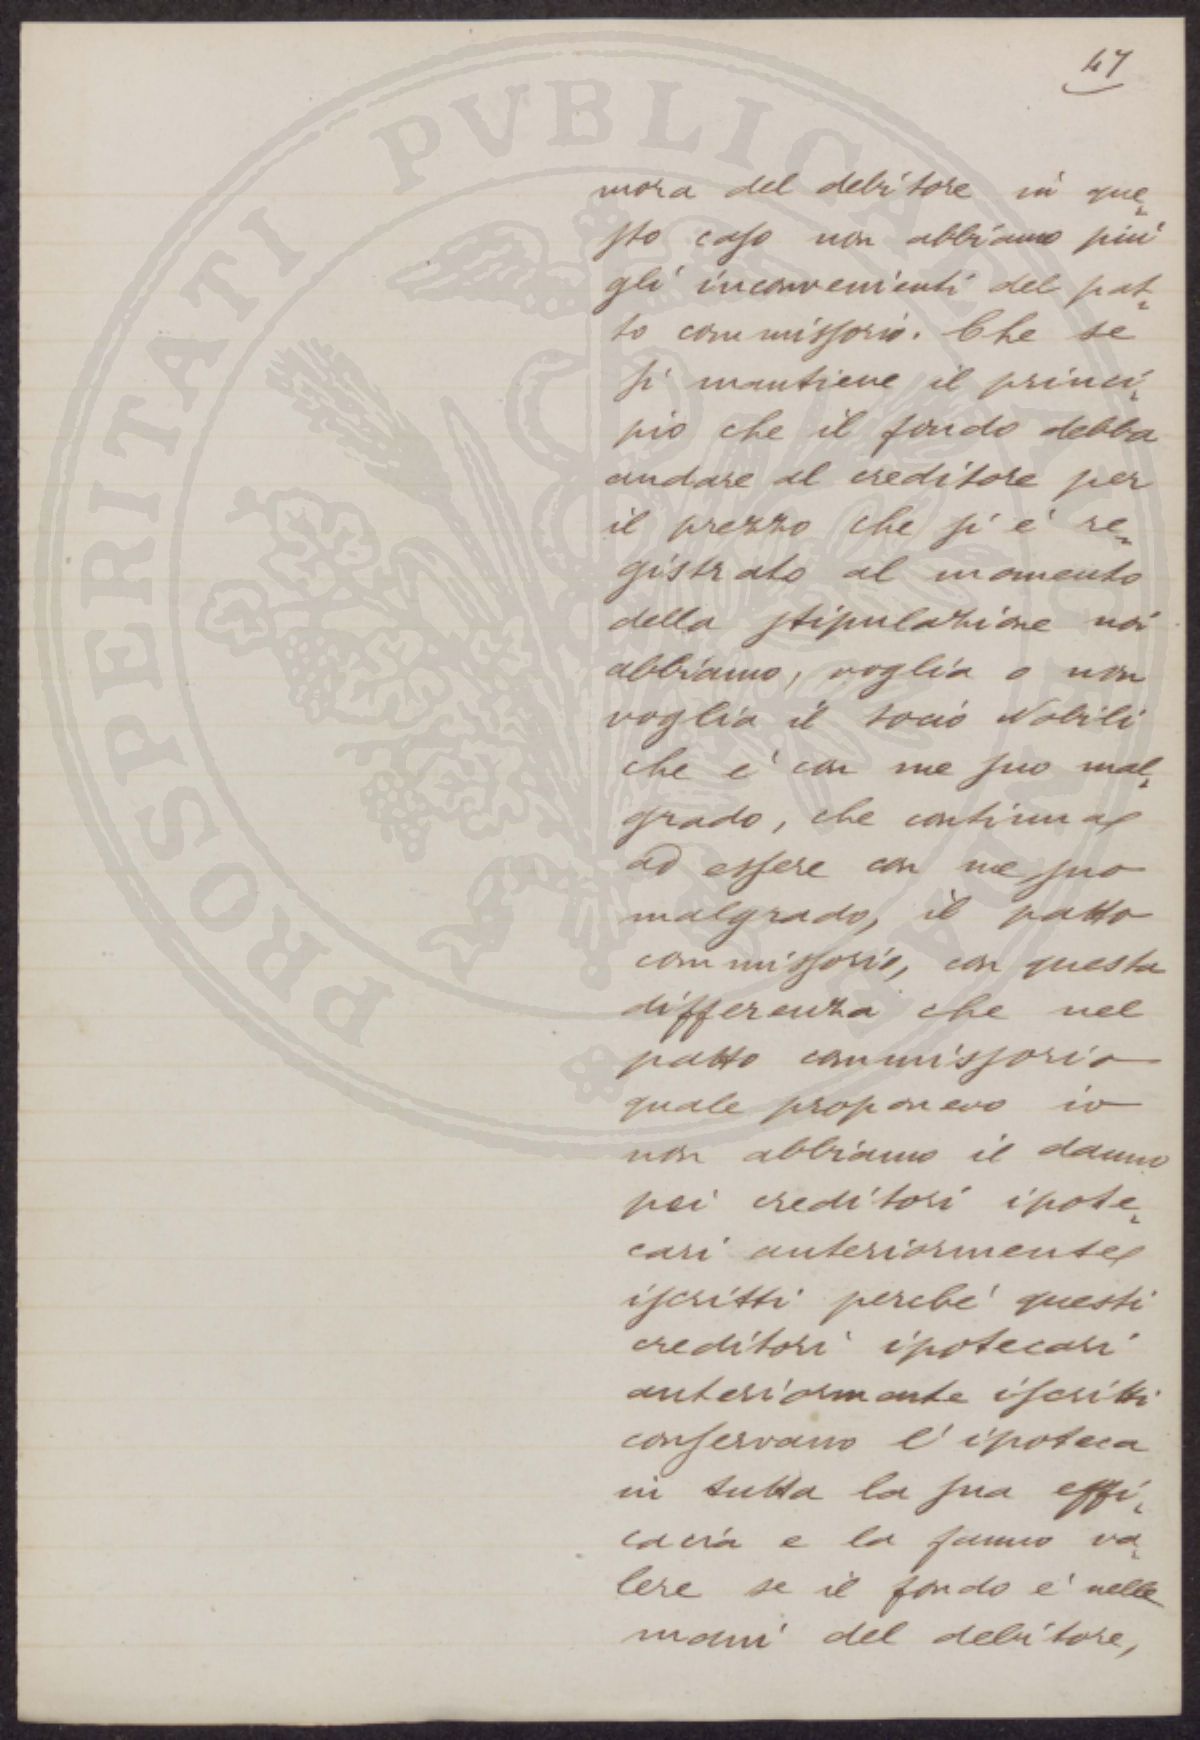 47
mora del debitore in que-
sto caso non abbiamo più
gli inconvenienti del pat-
to commissorio. Che se
si mantiene il princi-
pio che il fondo debba
andare al creditore per
il prezzo che si è re-
gistrato al momento
della stipulazione noi
abbiamo, voglia o non
voglia il socio Nobili
che è con me suo mal-
grado, che continua
ad essere con me suo
malgrado, il patto
commissorio, con questa
differenza che nel
patto commissorio
quale proponevo io
non abbiamo il danno
pei creditori ipote-
cari anteriormente
iscritti perchè questi
creditori ipotecari
anteriormente iscritti
conservano l'ipoteca
in tutta la sua effi-
cacia e la fanno va-
lere se il fondo è nelle
mani del debitore,
PROSPERITATI PVBLICAE AVGENDAE